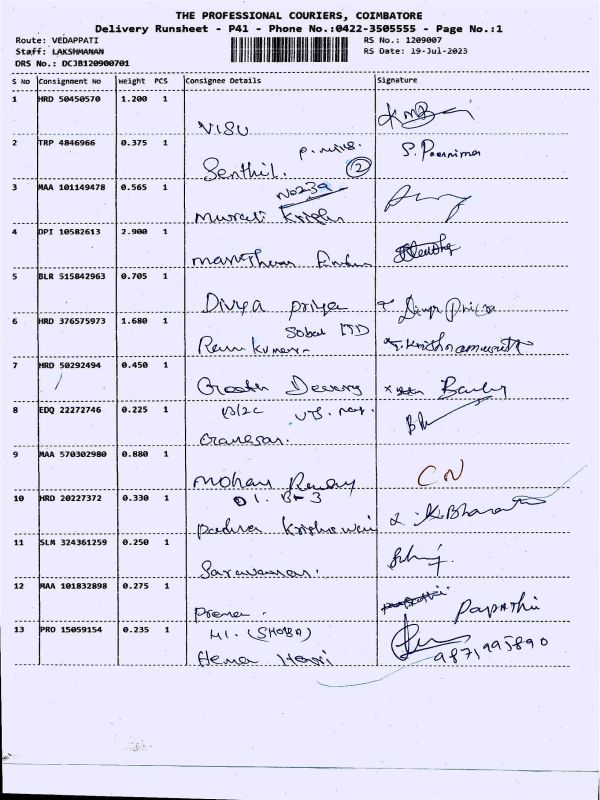 THE PROFESSIONAL COURIERS, COIMBATORE
Delivery Runsheet - P41 - Phone No.:0422-3505555 - Page No.:1
Route: VEDAPPATI RS No.: 1209007
Staff: LAKSHMANAN RS Date: 19-Jul-2023
DRS No.: DCJB120900701
S No Consignment No Weight PCS Consignee Details Signature
1 HRD 50450570 1.200 1
VISU
2 TRP 4846966 0.375 1
Senthil. 2 S. Poornima
3 MAA 101149478 0.565 1 No 239
Murali Krishn
4 DPI 10582613 2.900 1
5 BLR 515842963 0.705 1
Divya Priya Divya Priya
6 HRD 376575973 1.680 1
Ram Kumar T. Krishnamurthi
7 HRD 50292494 0.450 1
8 EDQ 22272746 0.225 1 B/2C
Ganesan.
9 MAA 570302980 0.880 1
Mohan CN
10 HRD 20227372 0.330 1 D1. B-3
Padma K. Bharath
11 SLM 324361259 0.250 1
Saravanan.
12 MAA 101832898 0.275 1
Prema. Papathi
13 PRO 15059154 0.235 1 H1. (SHOBA)
Hema 9871995890